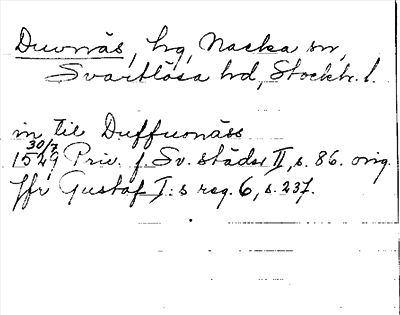 Duvnäs, hg, Nacka sn,
Svartlösa hd, Stockh. l.
in til Duffuonäss
30/7
1529 Priv. f. Sv. städer II, s. 86. orig.
Jfr Gustaf I:s reg. 6, s. 237.